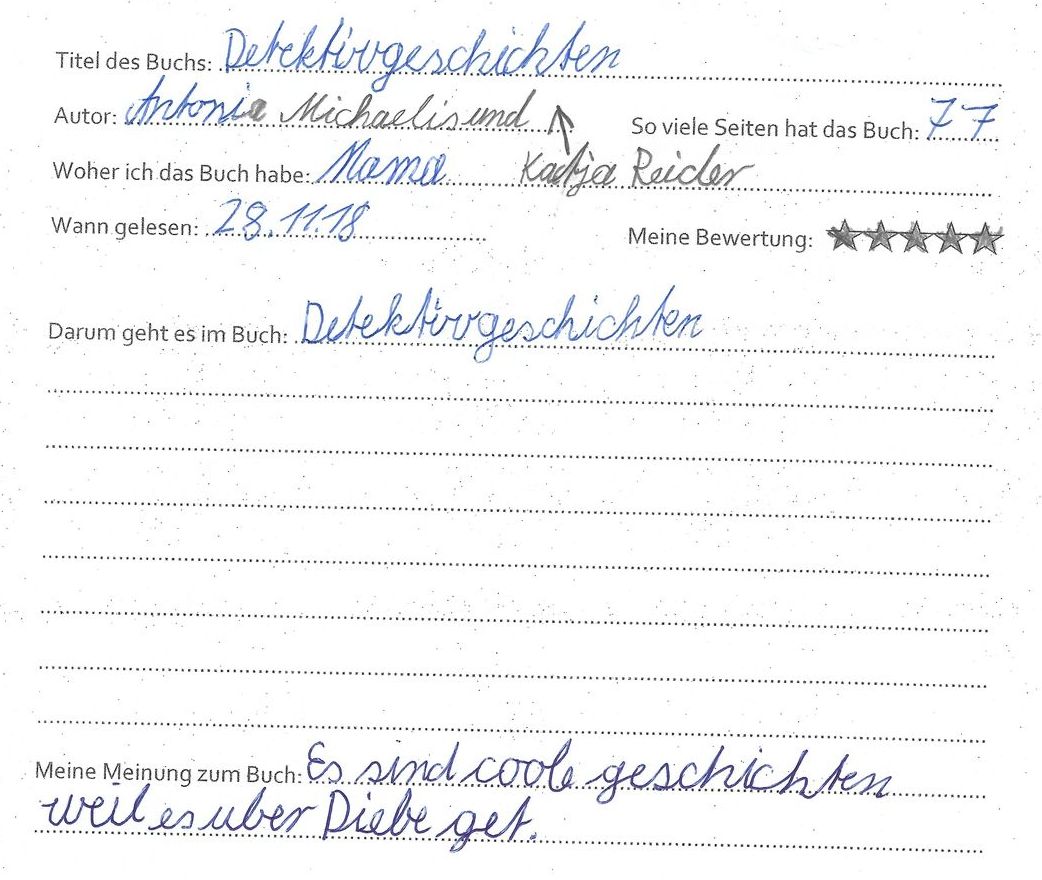 Titel des Buchs: Detektivgeschichten
Autor: Antonia Michaelis und
So viele Seiten hat das Buch: 77
Woher ich das Buch habe: Mama Katja Reider
Wann gelesen: 28.11.18
Meine Bewertung: ★★★★★
Darum geht es im Buch: Detektivgeschichten
Meine Meinung zum Buch: Es sind coole geschichten
weil es uber Diebe get.